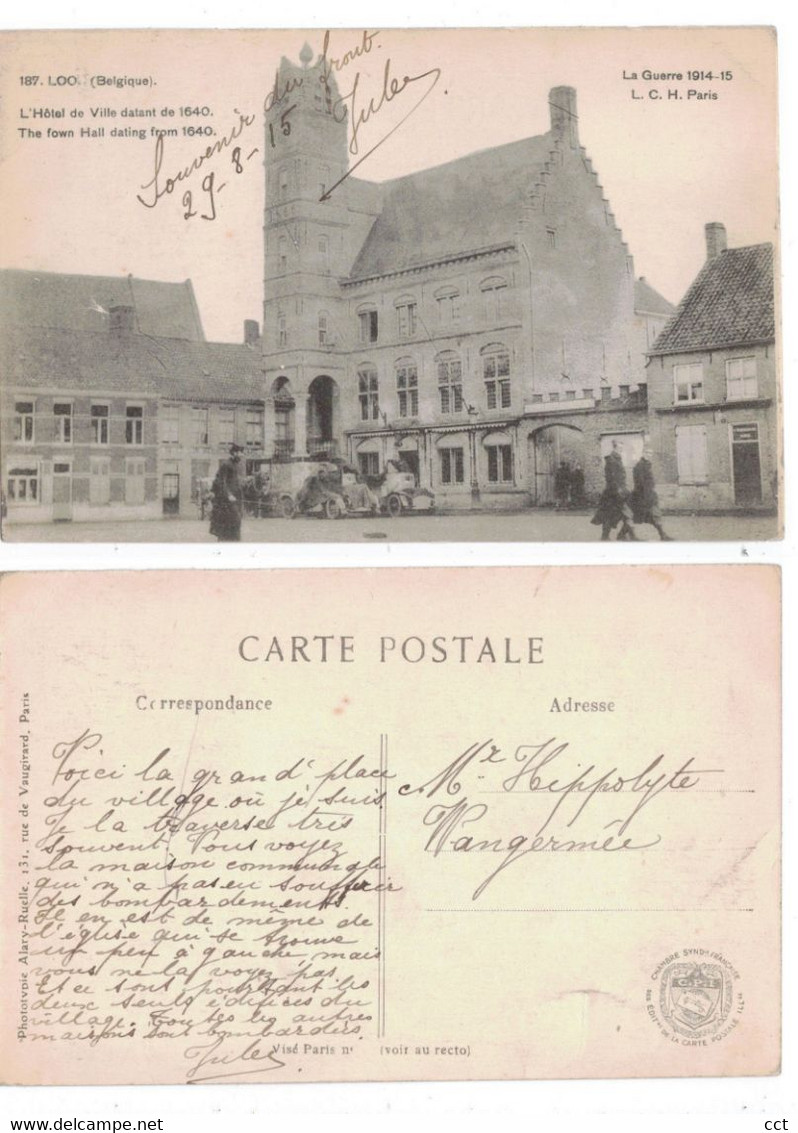 187. LOO. (Belgique).
L'Hôtel de Ville datant de 1640.
The fown Hall dating from 1640.
La Guerre 1914-15
L. C. H. Paris
Souvenir du front.
29-8-15
Jules
CARTE POSTALE
Correspondance
Adresse
Phototypie Alary-Ruelle, 131, rue de Vaugirard, Paris
Voici la grand' place
du village où je suis.
Je la traverse très
souvent. Vous voyez
la maison communale
qui n'a pas eu souffrir
des bombardements.
Il en est de même de
l'église qui se trouve
un peu à gauche mais
vous ne la voyez pas.
Et ce sont pourtant les
deux seuls édifices du
village. Toutes les autres
maisons sont bombardées.
Jules
Mr Hippolyte
Vangermée
Visé Paris n° (voir au recto)
CHAMBRE SYNDle FRANÇAISE
DES ÉDITrs DE LA CARTE POSTALE ILLée
cct